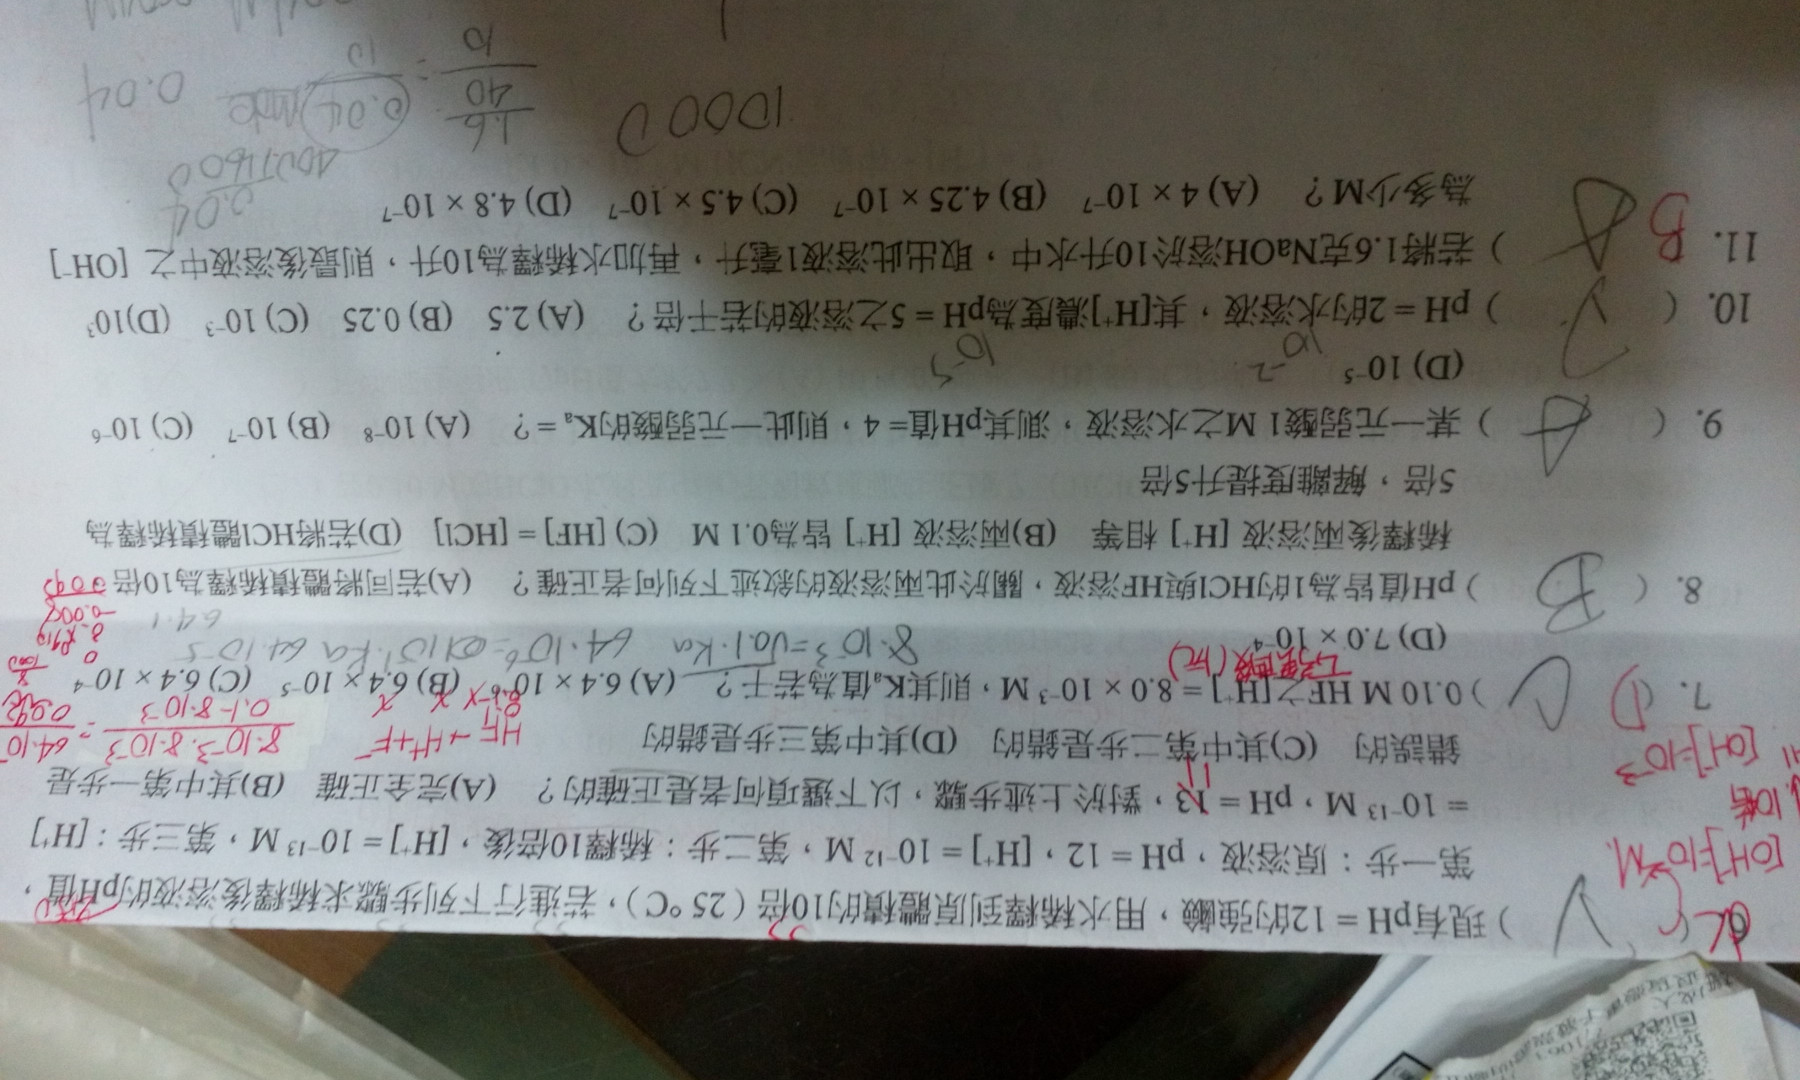 )現有pH = 12的強鹼，用水稀釋到原體積的10倍（25 °C），若進行下列步驟求稀釋後溶液的pH值，
第一步：原溶液，pH = 12，[H⁺] = 10⁻¹² M，第二步：稀釋10倍後，[H⁺] = 10⁻¹³ M，第三步：[H⁺]
= 10⁻¹³ M，pH = 13，對於上述步驟，以下選項何者是正確的？ (A)完全正確 (B)其中第一步是
錯誤的 (C)其中第二步是錯的 (D)其中第三步是錯的
[OH⁻]=10⁻² M.
[OH⁻]=10⁻³
11
HF → H⁺ + F⁻
0.1-x x x
8·10⁻³·8·10⁻³
0.1-8·10⁻³
7. ( D C )0.10 M HF之[H⁺] = 8.0 × 10⁻³ M，則其Kₐ值為若干？ (A) 6.4 × 10⁻⁶ (B) 6.4 × 10⁻⁵ (C) 6.4 × 10⁻⁴
(D) 7.0 × 10⁻⁴
8·10⁻³=√0.1·Ka 64·10⁻⁶=
64·1
8. ( B )pH值皆為1的HCl與HF溶液，關於此兩溶液的敘述下列何者正確？ (A)若同將體積稀釋為10倍，
稀釋後兩溶液 [H⁺] 相等 (B)兩溶液 [H⁺] 皆為0.1 M (C) [HF] = [HCl] (D)若將HCl體積稀釋為
5倍，解離度提升5倍
9. ( A )某一元弱酸1 M之水溶液，測其pH值= 4，則此一元弱酸的Kₐ = ? (A) 10⁻⁸ (B) 10⁻⁷ (C) 10⁻⁶
(D) 10⁻⁵
10⁻² 10⁻⁵
10. ( )pH = 2的水溶液，其[H⁺]濃度為pH = 5之溶液的若干倍？ (A) 2.5 (B) 0.25 (C) 10⁻³ (D)10³
11. B A )若將1.6克NaOH溶於10升水中，取出此溶液1毫升，再加水稀釋為10升，則最後溶液中之 [OH⁻]
為多少M？ (A) 4 × 10⁻⁷ (B) 4.25 × 10⁻⁷ (C) 4.5 × 10⁻⁷ (D) 4.8 × 10⁻⁷
0.04
1.6
40
10
=
0.04 mole
10
0.04
1000